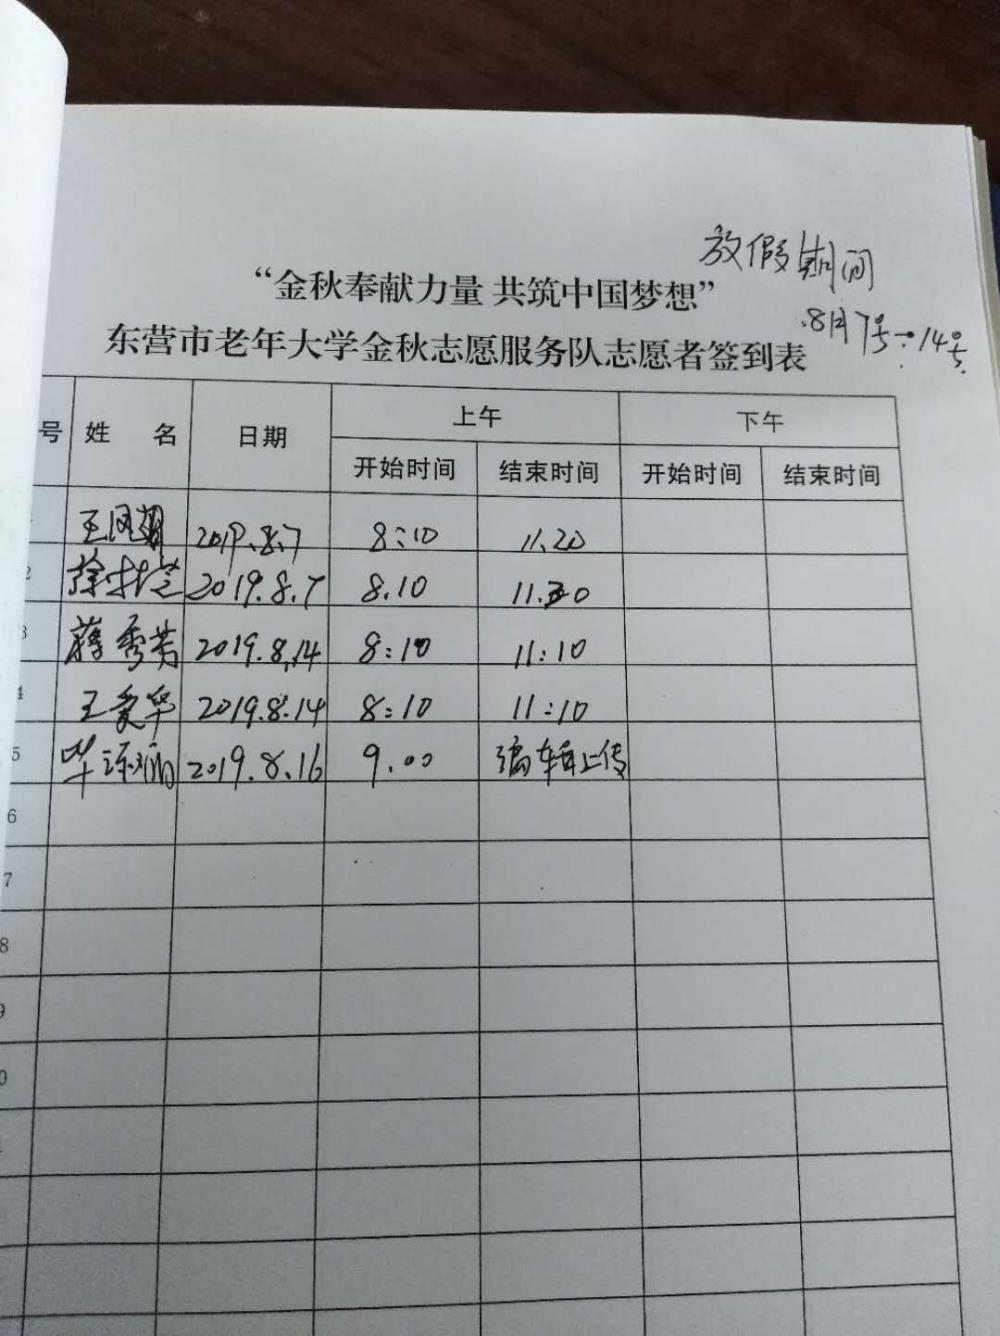 放假期间
“金秋奉献力量 共筑中国梦想”
8月7号—14号
东营市老年大学金秋志愿服务队志愿者签到表
号 姓 名 日期 上午 下午
开始时间 结束时间 开始时间 结束时间
王凤 2019.8.7 8:10 11.20
2 徐 2019.8.7 8.10 11.30
3 蒋秀芳 2019.8.14 8:10 11:10
4 王爱华 2019.8.14 8:10 11:10
5 毕 2019.8.16 9.00 编辑上传
6
7
8
9
0